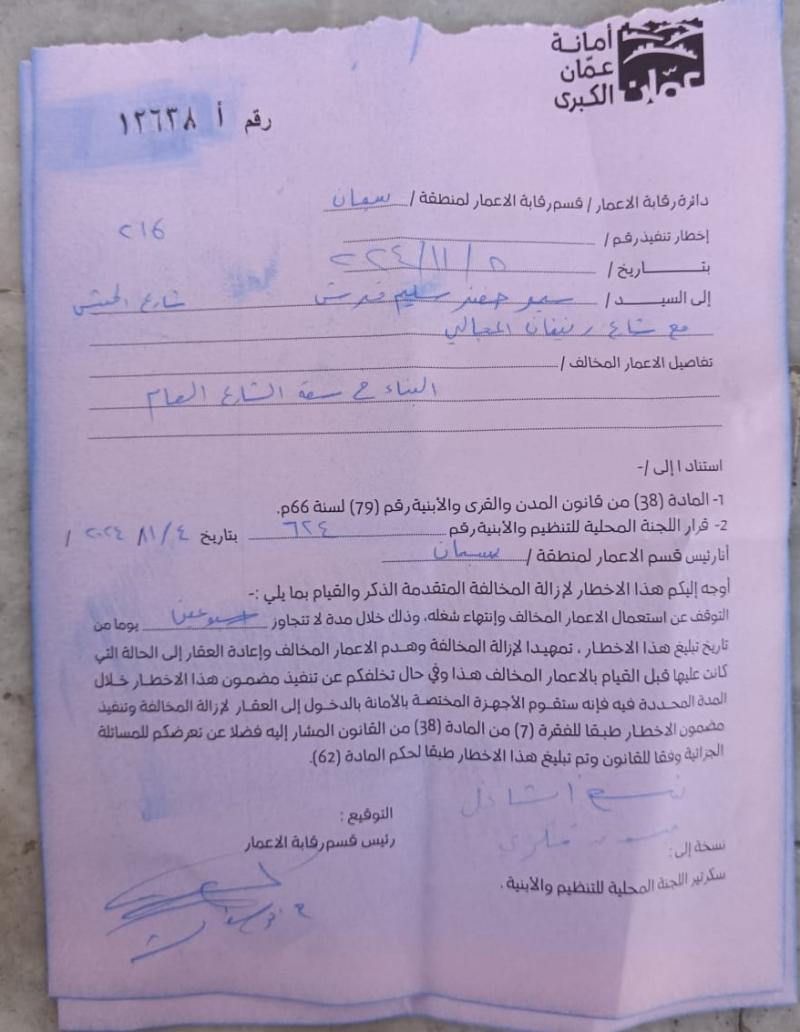 أمانة
عمّان
الكبرى
عمّان
رقم أ ١٢٦٣٨
دائرة رقابة الاعمار / قسم رقابة الاعمار لمنطقة / بسمان
إخطار تنفيذ رقم / ٢١٦
بتـــــــاريخ / ٢٠٢٤/١١/٥
إلى السيـــــد / جعفر سليم شارع
مع شارع المجالي
تفاصيل الاعمار المخالف /
البناء في سعة الشارع العام
استنادا إلى /-
1- المادة (38) من قانون المدن والقرى والأبنية رقم (79) لسنة 66م.
2- قرار اللجنة المحلية للتنظيم والأبنية رقم ٦٢٤ بتاريخ ٤ /١١/ ٢٠٢٤ /
أنا رئيس قسم الاعمار لمنطقة / بسمان
أوجه إليكم هذا الاخطار لإزالة المخالفة المتقدمة الذكر والقيام بما يلي :-
التوقف عن استعمال الاعمار المخالف وإنتهاء شغله، وذلك خلال مدة لا تتجاوز اسبوعين يوما من
تاريخ تبليغ هذا الاخطار ، تمهيدا لإزالة المخالفة وهدم الاعمار المخالف وإعادة العقار إلى الحالة التي
كانت عليها قبل القيام بالاعمار المخالف هذا وفي حال تخلفكم عن تنفيذ مضمون هذا الاخطار خلال
المدة المحددة فيه فإنه ستقوم الأجهزة المختصة بالأمانة بالدخول إلى العقار لإزالة المخالفة وتنفيذ
مضمون الاخطار طبقا للفقرة (7) من المادة (38) من القانون المشار إليه فضلا عن تعرضكم للمسائلة
الجزائية وفقا للقانون وتم تبليغ هذا الاخطار طبقا لحكم المادة (62).
التوقيع :
رئيس قسم رقابة الاعمار
نسخة إلى:
سكرتير اللجنة المحلية للتنظيم والأبنية .